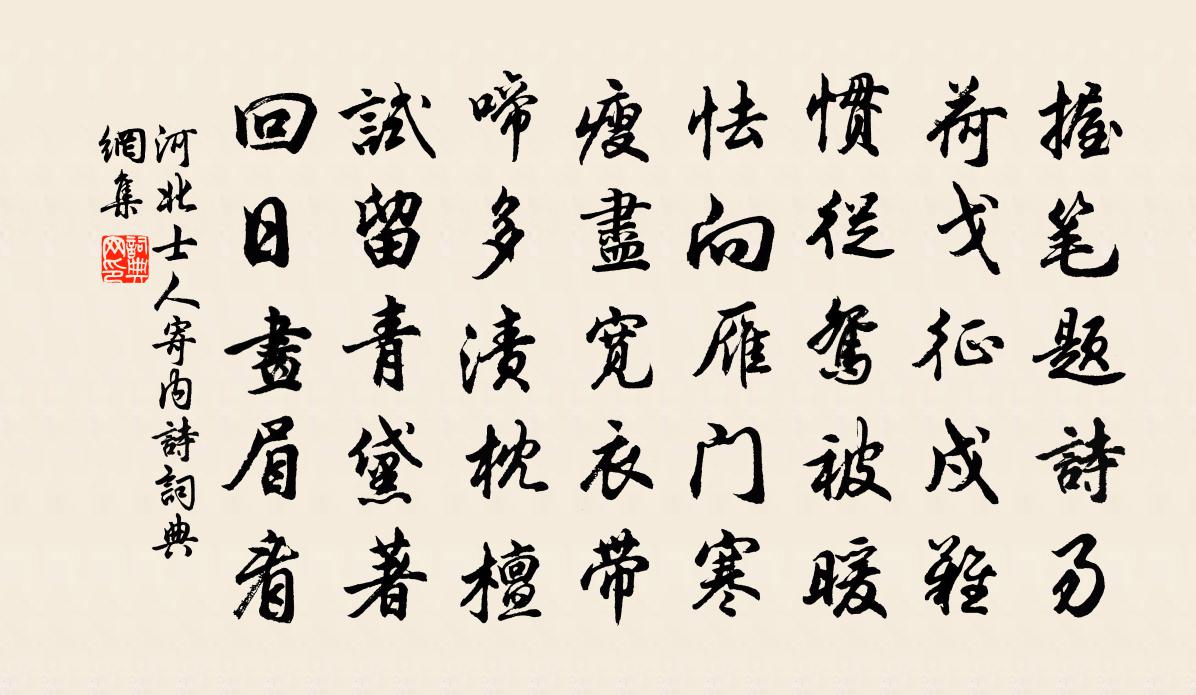 握笔题詩易
荷戈征戍難
慣從鴛被暖
怯向雁门寒
瘦盡寬衣带
啼多漬枕檀
試留青黛著
回日畫眉看
河北士人寄内詩詞典
網集
詞典
网印